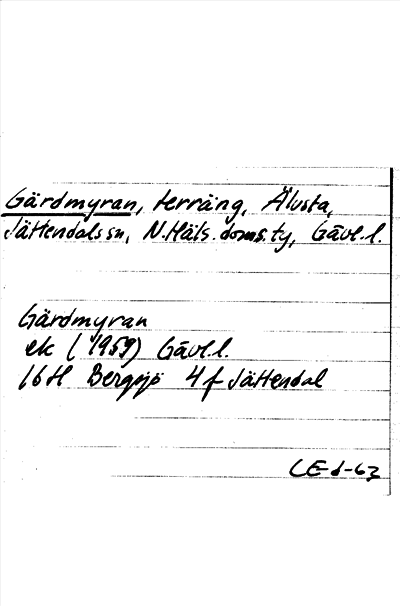 Gärdmyran, terräng, Älvsta,
Jättendals sn, N.Häls. doms.ty, Gävl.l.
Gärdmyran
ek (1959) Gävl.l.
16H Bergsjö 4f Jättendal
CE-d-63